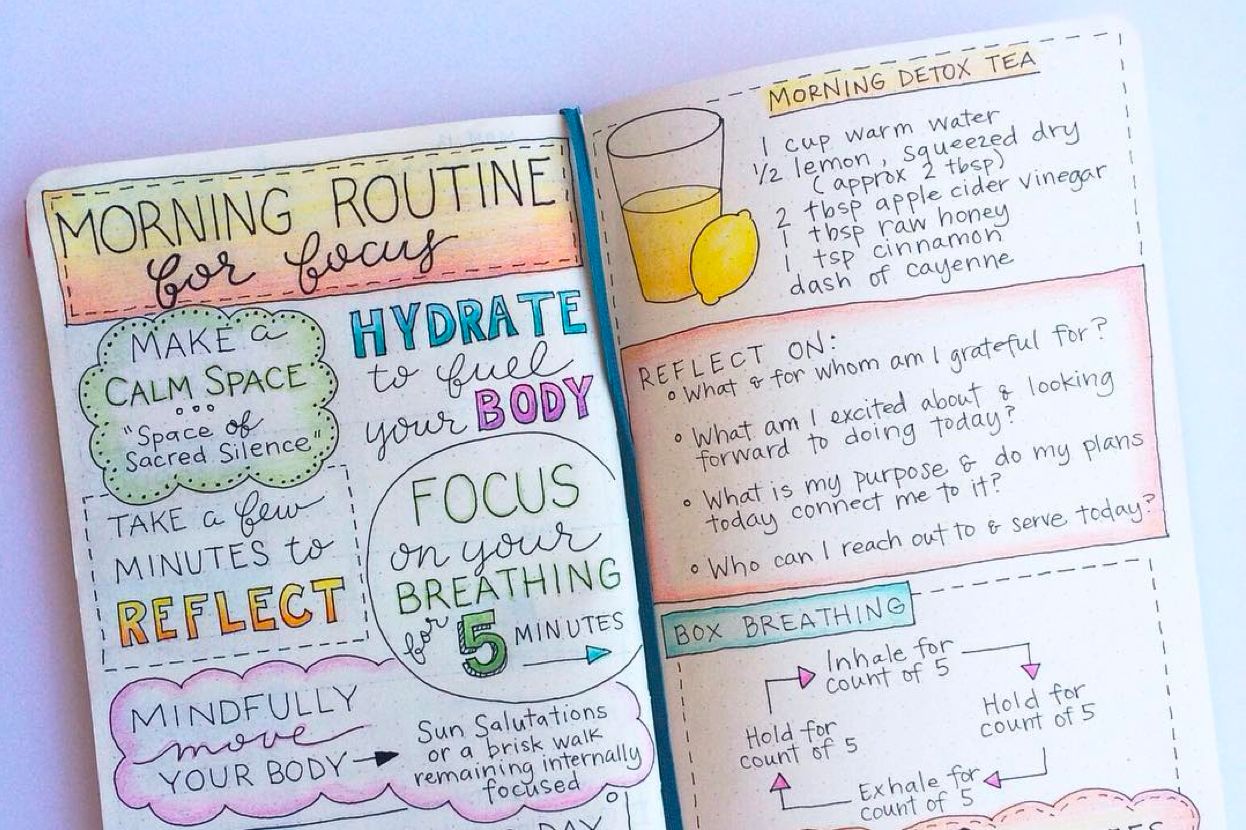 MORNING ROUTINE
for focus
MAKE a
CALM SPACE
"Space of
Sacred Silence"
HYDRATE
to fuel
your BODY
TAKE a few
MINUTES to
REFLECT
FOCUS
on your
BREATHING
for 5 MINUTES
MINDFULLY
move
YOUR BODY
Sun Salutations
or a brisk walk
remaining internally
focused
DAY
MORNING DETOX TEA
1 cup warm water
1/2 lemon, squeezed dry
(approx 2 tbsp)
2 tbsp apple cider vinegar
1 tbsp raw honey
1 tsp cinnamon
dash of cayenne
REFLECT ON:
◦ What & for whom am I grateful for?
◦ What am I excited about & looking
forward to doing today?
◦ What is my purpose & do my plans
today connect me to it?
◦ Who can I reach out to & serve today?
BOX BREATHING
Inhale for
count of 5
Hold for
count of 5
Exhale for
count of 5
Hold for
count of 5